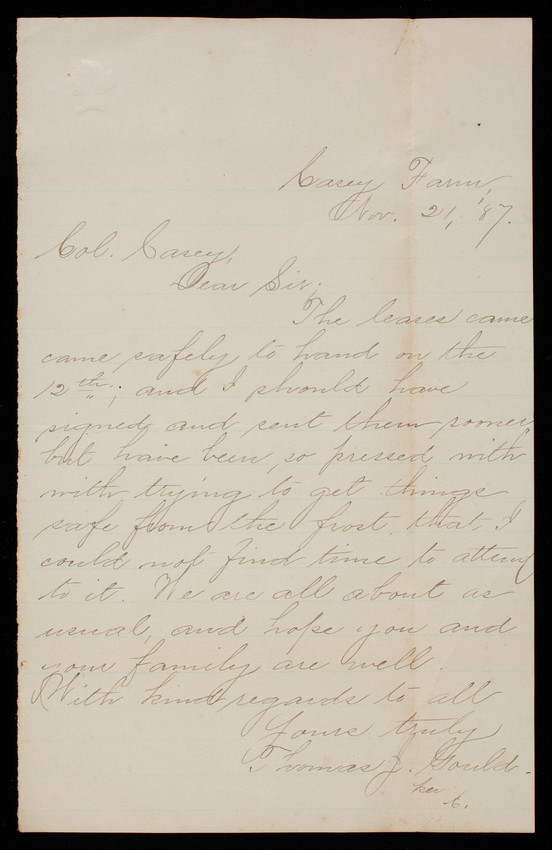 Casey Farm,
Nov. 21, '87.
Col. Casey,
Dear Sir;
The leases came
came safely to hand on the
12th; and I should have
signed and sent them sooner,
but have been so pressed with
with trying to get things
safe from the frost, that I
could not find time to attend
to it. We are all about as
usual, and hope you and
your family are well.
With kind regards to all
Yours truly
Thomas J. Gould.
per